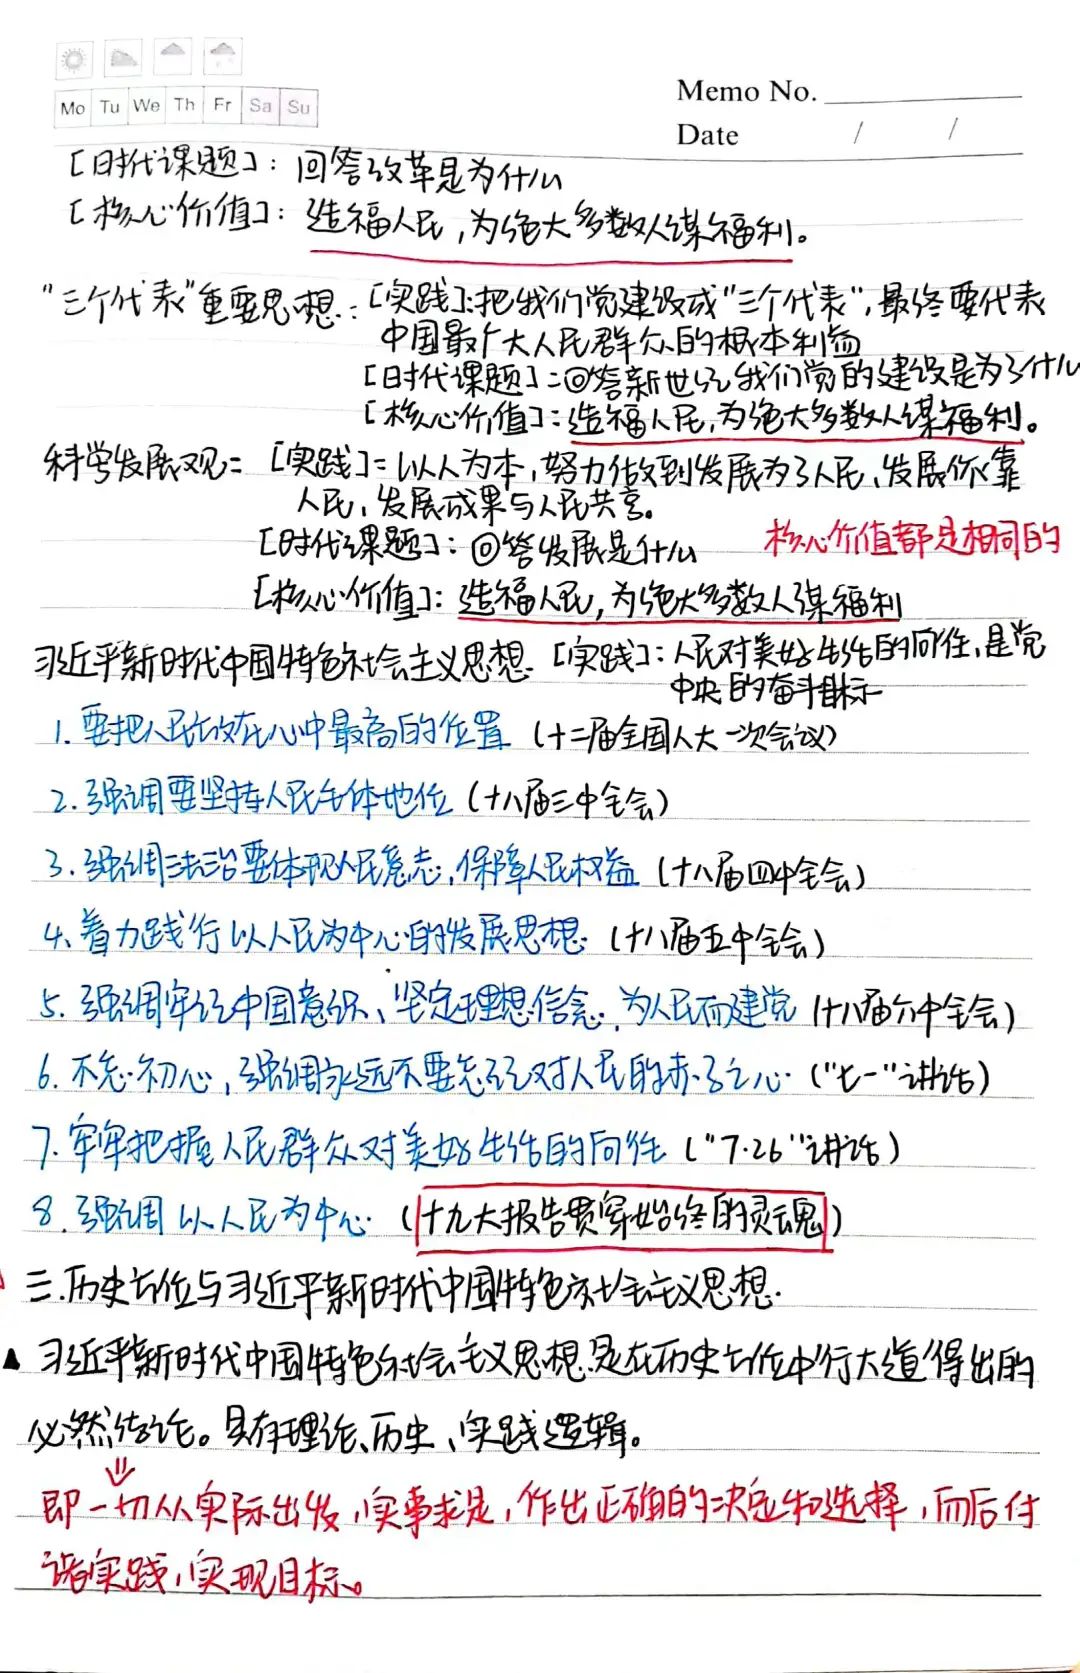 Mo Tu We Th Fr Sa Su
Memo No.
Date / /
[时代课题]：回答改革是为什么
[核心价值]：造福人民，为绝大多数人谋福利。
"三个代表"重要思想：[实践]：把我们党建设成"三个代表"，最终要代表
中国最广大人民群众的根本利益
[时代课题]：回答新世纪我们党的建设是为了什么
[核心价值]：造福人民，为绝大多数人谋福利。
科学发展观：[实践]：以人为本，努力做到发展为了人民、发展依靠
人民，发展成果与人民共享。
[时代课题]：回答发展是什么
核心价值都是相同的
[核心价值]：造福人民，为绝大多数人谋福利
习近平新时代中国特色社会主义思想. [实践]：人民对美好生活的向往，是党
中央的奋斗目标
1. 要把人民放在心中最高的位置（十二届全国人大一次会议）
2. 强调要坚持人民主体地位（十八届三中全会）
3. 强调法治要体现人民意志，保障人民权益（十八届四中全会）
4、着力践行以人民为中心的发展思想.（十八届五中全会）
5. 强调牢记中国意识、坚定理想信念，为人民而建党（十八届六中全会）
6. 不忘初心，强调永远不要忘记对人民的赤子之心.（"七一"讲话）
7. 牢牢把握人民群众对美好生活的向往（"7·26"讲话）
8. 强调以人民为中心.（十九大报告贯穿始终的灵魂）
三.历史方位与习近平新时代中国特色社会主义思想.
▲ 习近平新时代中国特色社会主义思想是在历史方位中'行大道'得出的
必然结论。具有理论、历史、实践逻辑。
即一切从实际出发，实事求是，作出正确的决定和选择，而后付
诸实践，实现目标。